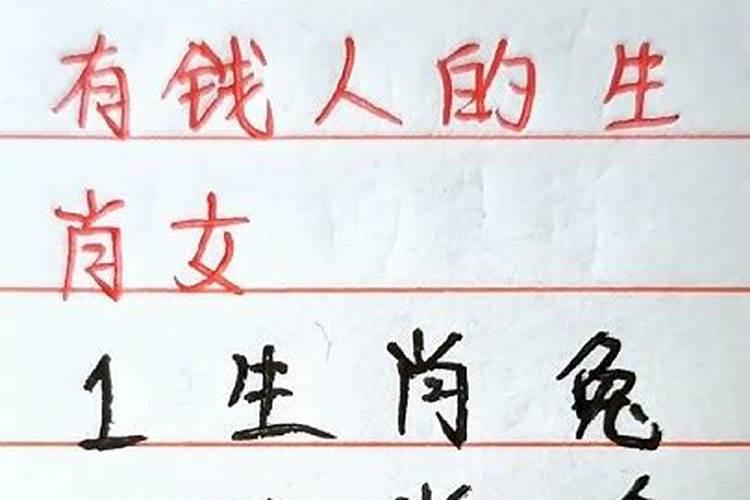 有钱人的生
肖女
1生肖兔